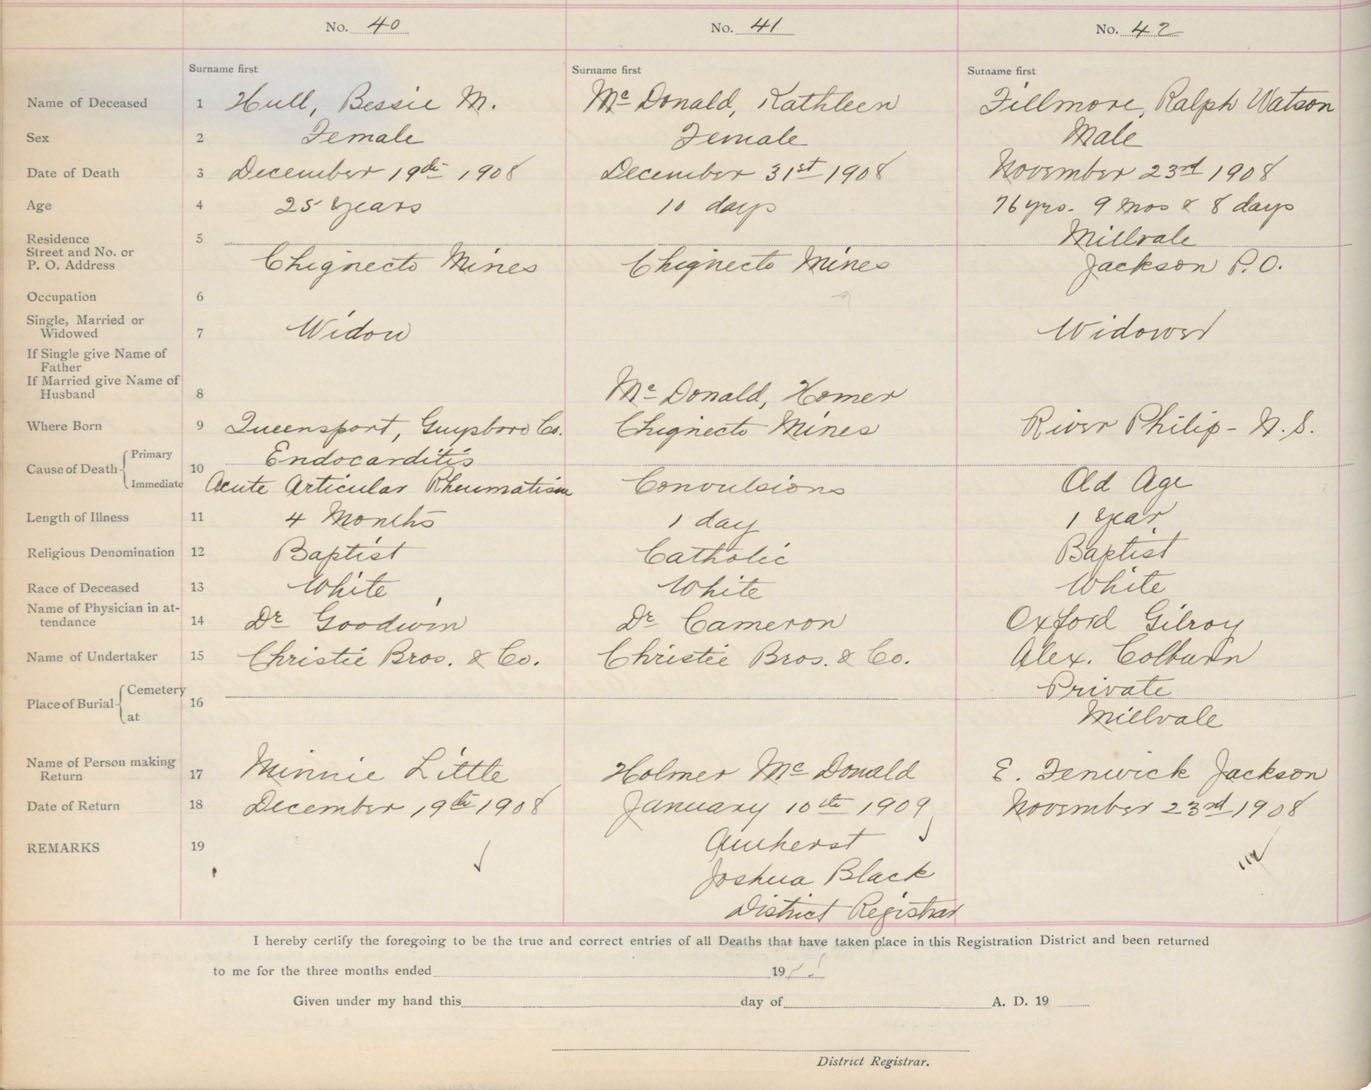 No. 40 No. 41 No. 42
Surname first Surname first Surname first
Name of Deceased 1 Hull, Bessie M. McDonald, Kathleen Fillmore, Ralph Watson
Sex 2 Female Female Male
Date of Death 3 December 19th 1908 December 31st 1908 November 23rd 1908
Age 4 25 years 10 days 76 yrs. 9 mos & 8 days
Residence 5 Millvale
Street and No. or
P. O. Address Chignecto Mines Chignecto Mines Jackson P.O.
Occupation 6
Single, Married or
Widowed 7 Widow Widower
If Single give Name of
Father
If Married give Name of
Husband 8 McDonald, Homer
Where Born 9 Queensport, Guysboro Co. Chignecto Mines River Philip - N.S.
Cause of Death Primary 10 Endocarditis
Immediate Acute Articular Rheumatism Convulsions Old Age
Length of Illness 11 4 Months 1 day 1 year
Religious Denomination 12 Baptist Catholic Baptist
Race of Deceased 13 White White White
Name of Physician in at-
tendance 14 Dr Goodwin Dr Cameron Oxford Gilroy
Name of Undertaker 15 Christie Bros. & Co. Christie Bros. & Co. Alex. Colburn
Place of Burial Cemetery 16 Private
at Millvale
Name of Person making
Return 17 Minnie Little Holmer McDonald E. Fenwick Jackson
Date of Return 18 December 19th 1908 January 10th 1909 November 23rd 1908
REMARKS 19 Amherst
Joshua Black
District Registrar
I hereby certify the foregoing to be the true and correct entries of all Deaths that have taken place in this Registration District and been returned
to me for the three months ended 19
Given under my hand this day of A. D. 19
District Registrar.